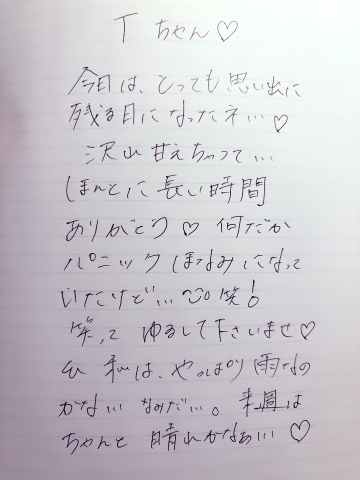 Tちゃん♡
今日は、とっても思い出に
残る日になったネ…♡
沢山甘えちゃって…
ほんとに長い時間
ありがとう♡何だか
パニックほなみになって
いたけど…笑!
笑ってゆるして下さいませ♡
私は、やっぱり雨なの
かな…なみだ…。来週は
ちゃんと晴れかなぁ…♡